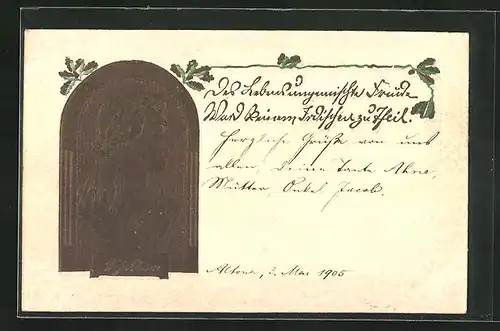 Des Lebens ungemischte Freude
Ward keinem Irdischen zu Theil.
Herzliche Grüße von uns
allen, Deine Tante
Mutter, Onkel Jacob.
Altona, 3. Mai 1905